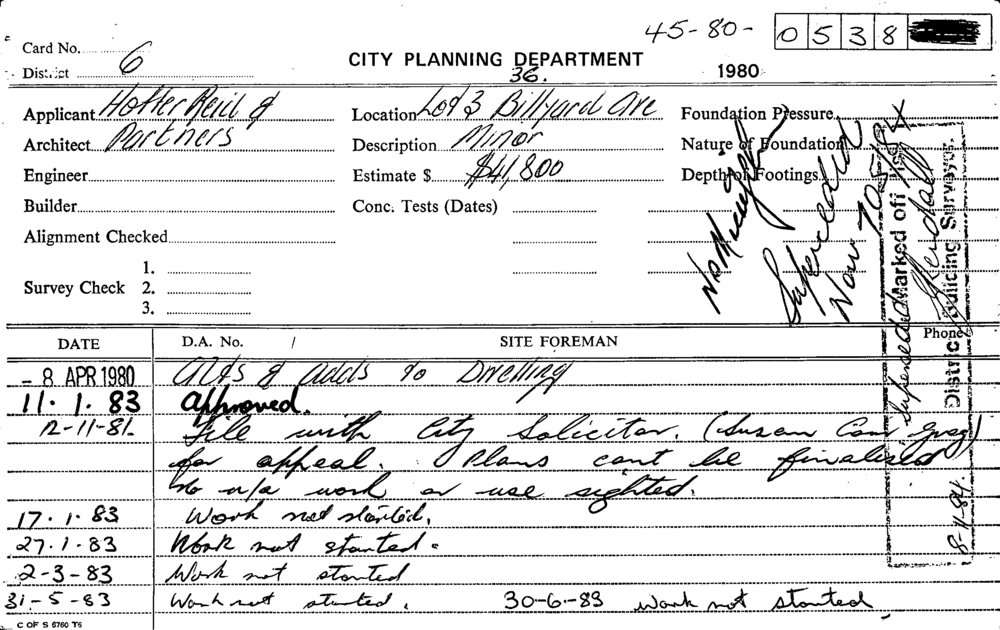 45-80-0538
Card No. 6
District
CITY PLANNING DEPARTMENT
36.
1980
Applicant Hoffer Reid &
Location Lot 3 Billyard Ave
Foundation Pressure
Architect Partners
Description Minor
Nature of Foundation
Engineer
Estimate $ $41,800
Depth of Footings
Builder
Conc. Tests (Dates)
Alignment Checked
1.
Survey Check 2.
3.
Superceded
Now 705/84
Superseded Marked off
District Building Surveyor.
8-11-84.
Phone
DATE
D.A. No. /
SITE FOREMAN
- 8 APR 1980 Alts & adds to Dwelling
11. 1. 83 Approved.
12-11-81. File with City Solicitor. (Susan
for appeal. Plans cant be finalised
No n/a work or use sighted.
17. 1. 83 Work not started.
27. 1 - 83 Work not started.
2-3-83 Work not started
31-5-83 Work not started. 30-6-83 work not started
C OF S 6760 T6